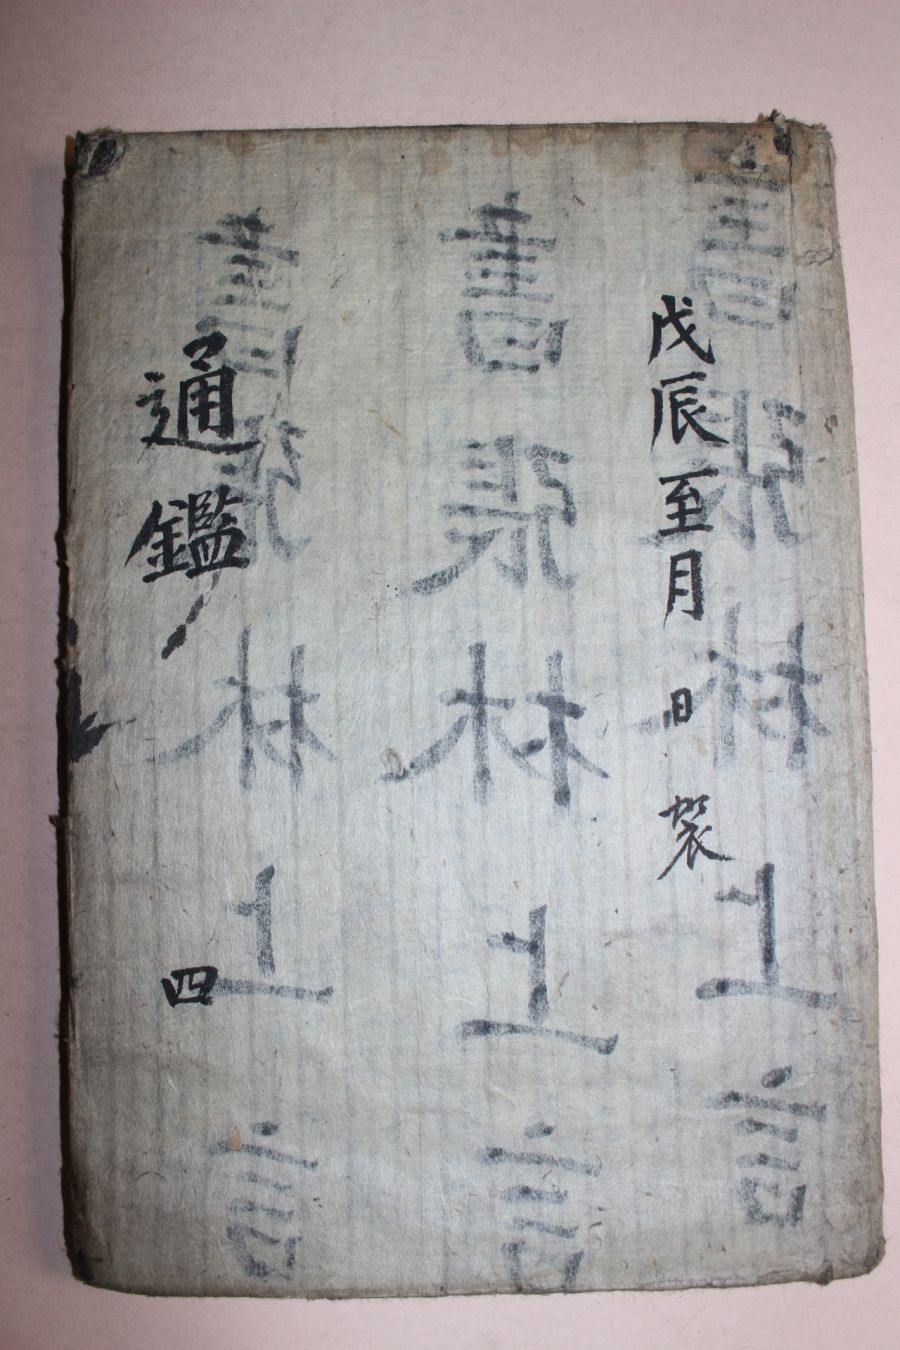 戊辰至月 日 装
書張林上言
書張林上言
書張林上言
通鑑
四